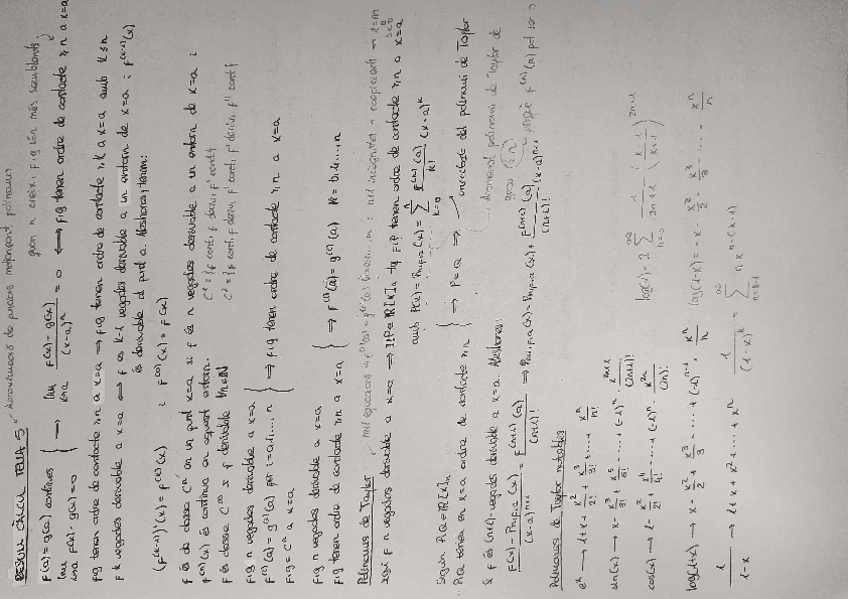 RESUM CÀLCUL TEMA 5
"Aproximació de funcions mitjançant polinomis
quan n creix, f i g són més semblants
f(a) = g(a) contínues
lim f(x) - g(x) = 0
x→a
lim f(x) - g(x) / (x-a)^n = 0 ⟷ f i g tenen ordre de contacte ≥ n a x=a
x→a
f i g tenen ordre de contacte ≥ n a x=a ⟹ f i g tenen ordre de contacte ≥ k a x=a amb k ≤ n
f k vegades derivable a x=a ⟺ f és k-1 vegades derivable a un entorn de x=a i f^(k-1)(x)
és derivable al punt a. Aleshores, tenim:
(f^(k-1))'(x) = f^(k)(x) i f^(0)(x) = f(x)
f és de classe C^n en un punt x=a si f és n vegades derivable a un entorn de x=a i
f^(n)(x) és contínua en aquest entorn.
C^1 = {f cont, f deriv, f' cont}
C^2 = {f cont, f deriv, f' cont, f' deriv, f'' cont}
f és classe C^∞ si f derivable ∀n∈ℕ
f i g n vegades derivable a x=a
f^(i)(a) = g^(i)(a) per i=0,1,...,n
} ⟹ f i g tenen ordre de contacte ≥ n a x=a
f i g = C^n a x=a
f i g n vegades derivable a x=a
f i g tenen ordre de contacte ≥ n a x=a
} ⟹ f^(k)(a) = g^(k)(a) k=0,1,...,n
Polinomis de Taylor
sigui f n vegades derivable a x=a ⟹ ∃!P∈ℝ[x]n tq f i P tenen ordre de contacte ≥ n a x=a
amb P(x) = Pn,f,a(x) = Σ k=0 n f^(k)(a) / k! (x-a)^k
Siguin P,Q∈ℝ[x]n
P,Q tenen en x=a ordre de contacte ≥ n
} ⟹ P=Q ⟹ unicitat del polinomi de Taylor
Si f és (n+1)-vegades derivable a x=a. Aleshores:
f(x) - Pn,f,a(x) / (x-a)^n+1 = f^(n+1)(a) / (n+1)! ⟹ Pn+1,f,a(x) = Pn,f,a(x) + f^(n+1)(a) / (n+1)! (x-a)^n+1
perquè f^(n)(a) pot ser 0
Polinomis de Taylor notables
e^x ⟶ 1+x+ x²/2! + x³/3! + ... + x^n/n!
sin(x) ⟶ x - x³/3! + x⁵/5! + ... + (-1)^n x^2n+1/(2n+1)!
cos(x) ⟶ 1 - x²/2! + x⁴/4! + ... + (-1)^n x^2n/(2n)!
log(x) = 2 Σ n=0 ∞ 1/2n+1 (x-1/x+1)^2n+1
log(1+x) ⟶ x - x²/2 + x³/3 - ... + (-1)^n-1 x^n/n
log(1-x) = -x - x²/2 - x³/3 - ... - x^n/n
1/1-x ⟶ 1+x+x²+...+x^n